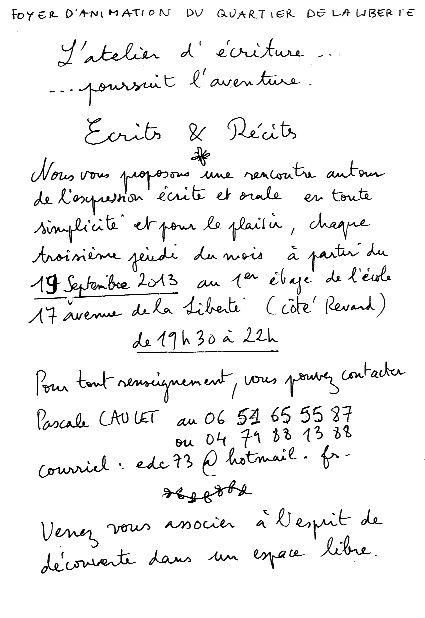 FOYER D'ANIMATION DU QUARTIER DE LA LIBERTE
L'atelier d'écriture ...
... poursuit l'aventure.
Ecrits & Récits
Nous vous proposons une rencontre autour
de l'expression écrite et orale en toute
simplicité et pour le plaisir, chaque
troisième jeudi du mois à partir du
19 Septembre 2013 au 1er étage de l'école
17 avenue de la Liberté (côté Revard)
de 19h30 à 22h
Pour tout renseignement, vous pouvez contacter
Pascale CAULET au 06 51 65 55 87
ou 04 79 88 13 88
courriel : edc73@hotmail.fr-
Venez vous associer à l'esprit de
découverte dans un espace libre.